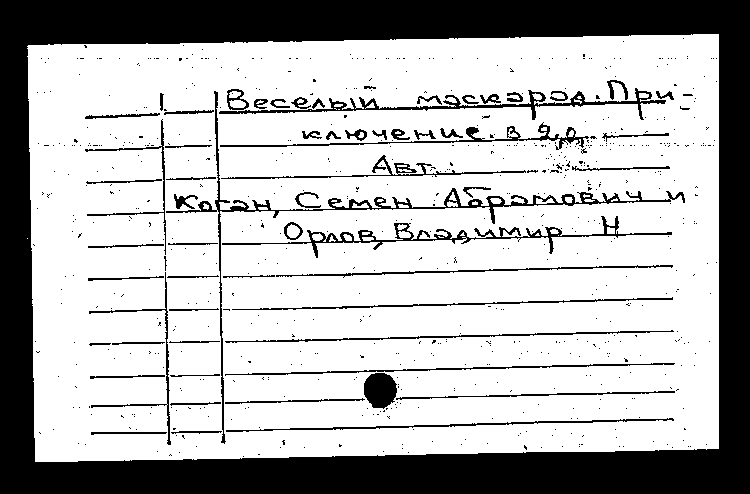 Веселый маскарад. При-
ключение в 2 д.
Авт.:
Коган, Семен Абрамович и
Орлов, Владимир Н